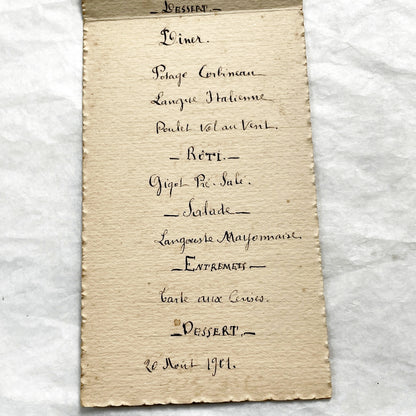 — Dessert. —
Dîner.
Potage Corbineau
Langue Italienne
Poulet Vol au Vent.
— Rôti. —
Gigot Pré-Salé.
— Salade —
Langouste Mayonnaise
— Entremets —
Tarte aux Cerises.
— Dessert. —
20 Août 1901.